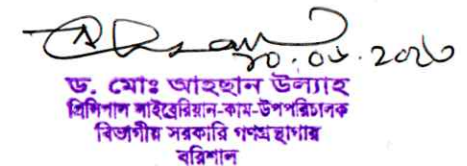 ২০.০৬.২০২৩
ড. মোঃ আহছান উল্যাহ
প্রিন্সিপাল লাইব্রেরিয়ান-কাম-উপপরিচালক
বিভাগীয় সরকারি গণগ্রন্থাগার
বরিশাল